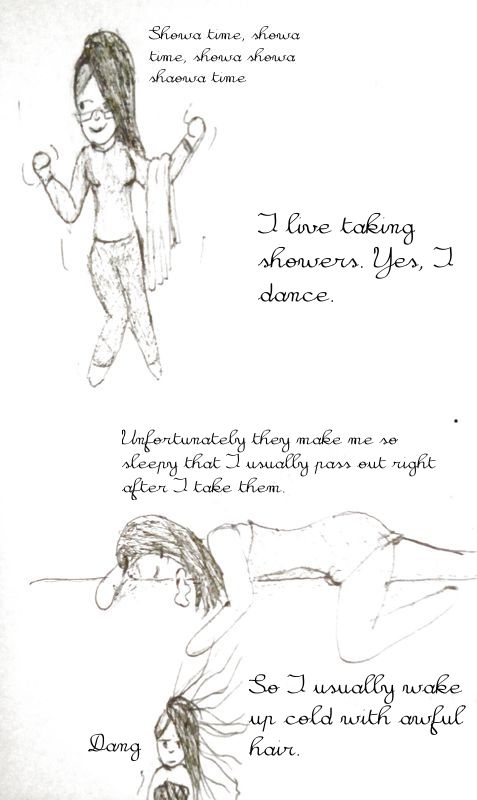 Showa time, showa
time, showa showa
shaowa time
I live taking
showers. Yes, I
dance.
Unfortunately they make me so
sleepy that I usually pass out right
after I take them.
So I usually wake
up cold with awful
hair.
Dang